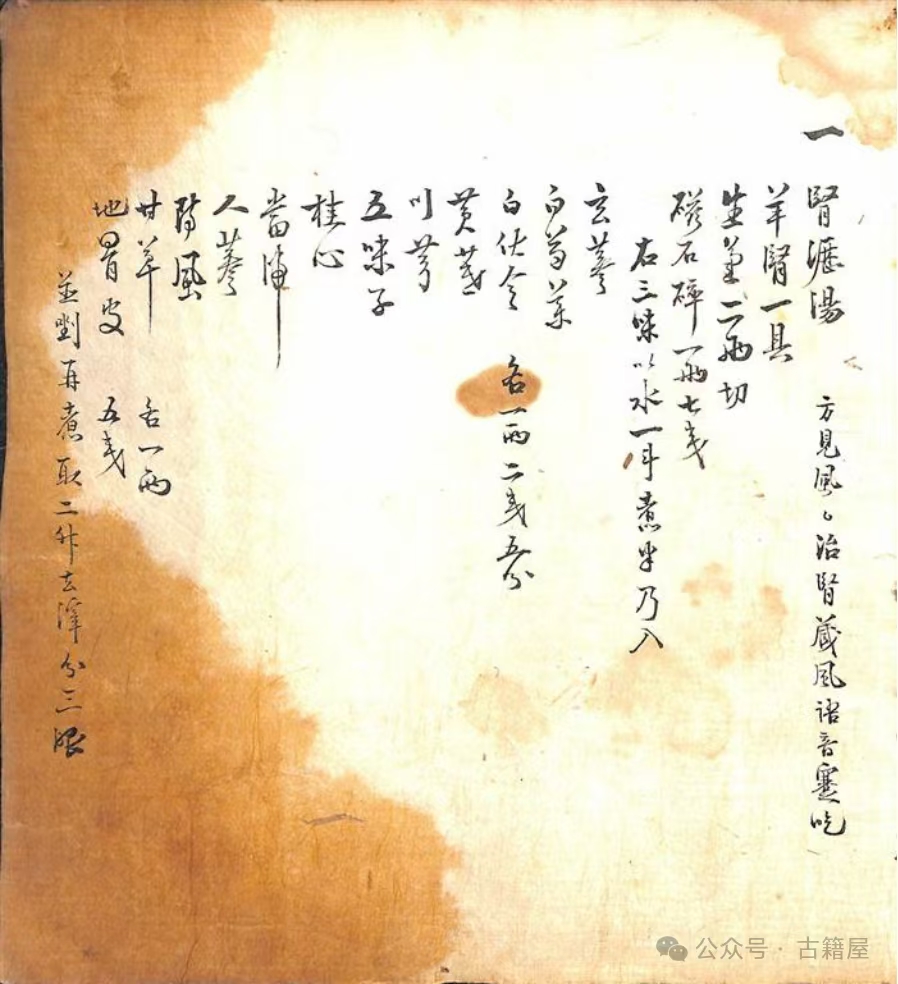 一
腎瀝湯 方見風々治腎藏風語音蹇吃
羊腎一具
生姜二兩切
磁石碎一兩七戋
右三味以水一斗煮半乃入
玄蓡
白芍薬
白伏令 各一兩二戋五分
黄芪
川芎
五味子
桂心
當歸
人蓡
防風
甘草 各一兩
地骨皮 五戋
並剉再煮取二升去滓分三服
公众号·古籍屋